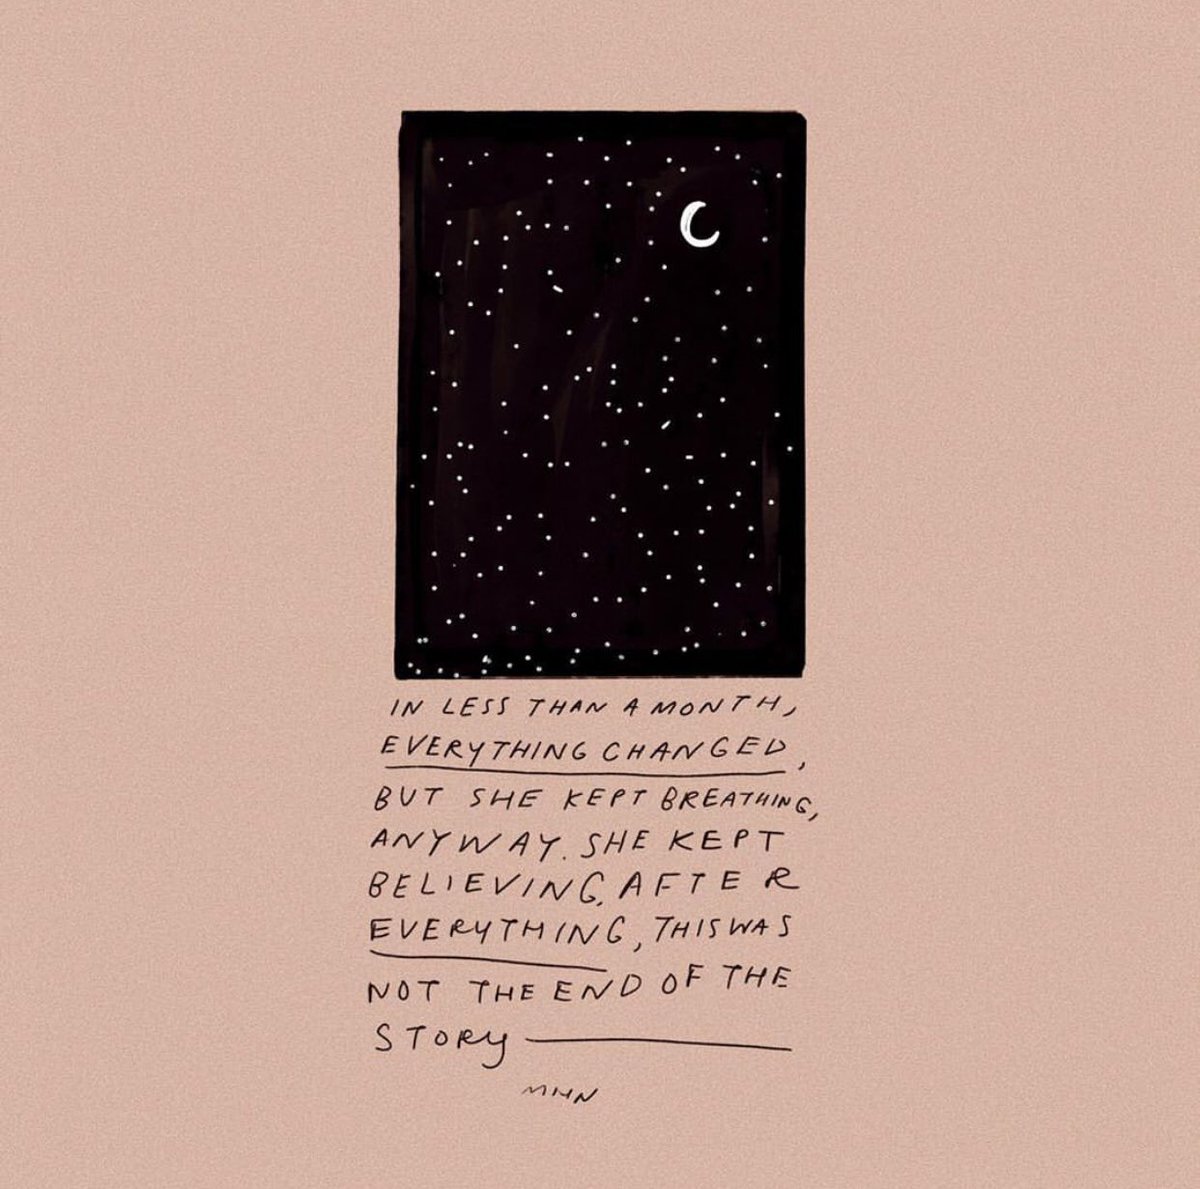 IN LESS THAN A MONTH,
EVERYTHING CHANGED,
BUT SHE KEPT BREATHING,
ANYWAY. SHE KEPT
BELIEVING, AFTER
EVERYTHING, THIS WAS
NOT THE END OF THE
STORY —
MHN